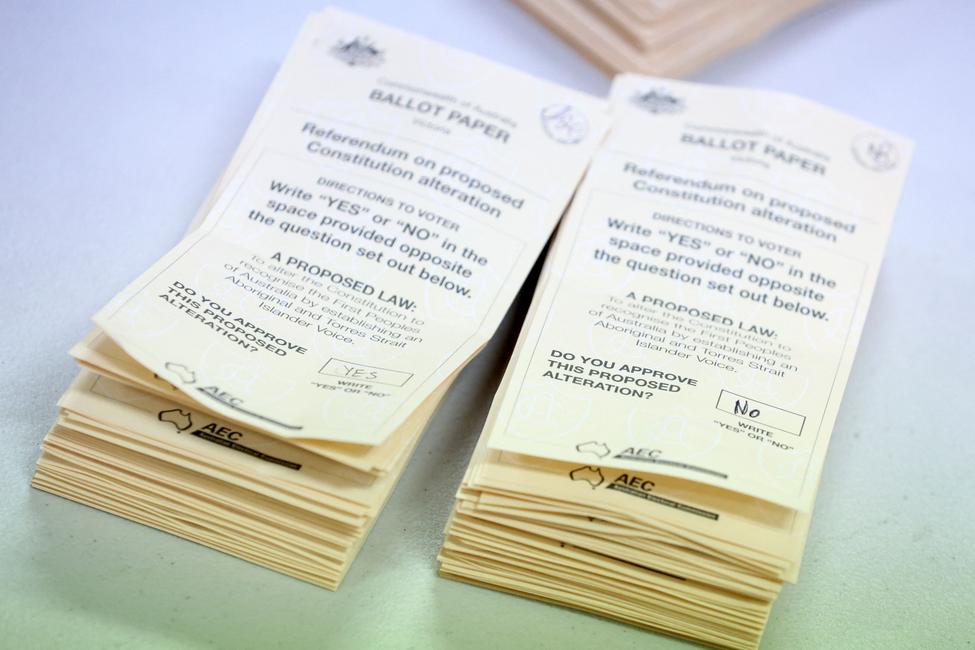 Commonwealth of Australia
BALLOT PAPER
Victoria
Referendum on proposed
Constitution alteration
DIRECTIONS TO VOTER
Write "YES" or "NO" in the
space provided opposite
the question set out below.
A PROPOSED LAW:
To alter the Constitution to
recognise the First Peoples
of Australia by establishing an
Aboriginal and Torres Strait
Islander Voice.
DO YOU APPROVE
THIS PROPOSED
ALTERATION?
YES
WRITE
"YES" OR "NO"
AEC
AEC
Australian Electoral Commission
Commonwealth of Australia
BALLOT PAPER
Victoria
Referendum on proposed
Constitution alteration
DIRECTIONS TO VOTER
Write "YES" or "NO" in the
space provided opposite
the question set out below.
A PROPOSED LAW:
To alter the Constitution to
recognise the First Peoples
of Australia by establishing an
Aboriginal and Torres Strait
Islander Voice.
DO YOU APPROVE
THIS PROPOSED
ALTERATION?
No
WRITE
"YES" OR "NO"
AEC
AEC
Australian Electoral Commission